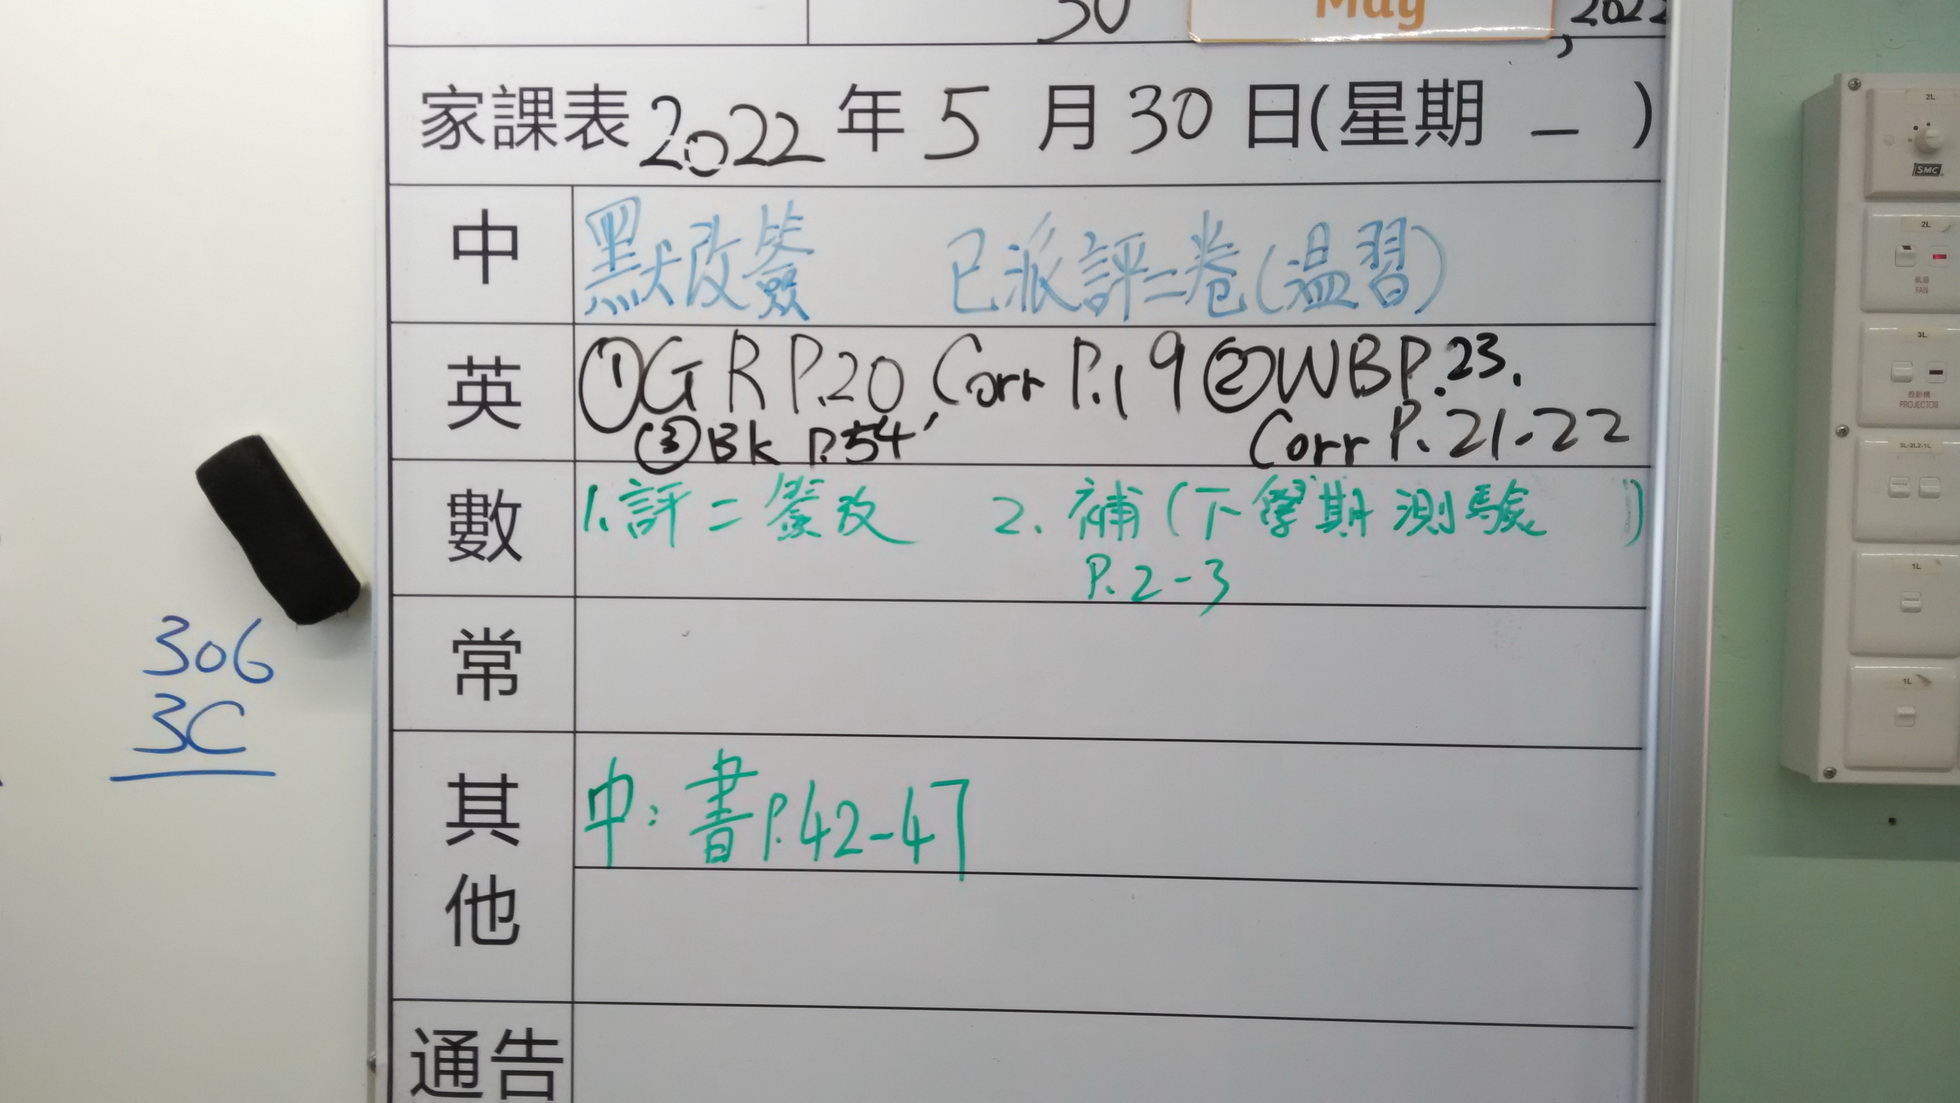 30 May, 2022
家課表 2022年 5月 30日(星期 一 )
中 默改簽 已派評二卷(温習)
英 ①GR P.20, Corr P.19 ②WB P.23.
③Bk P.54 Corr P.21-22
數 1.評二簽改 2.補(下學期測驗 )
P.2-3
常
306
3C
其他 中:書P.42-47
通告
2L
SMC
2L
FAN
3L
PROJECTOR
1L
1L